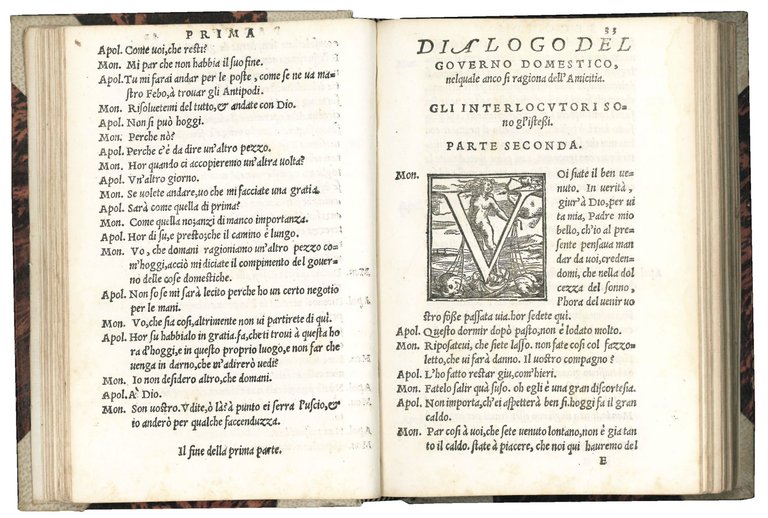 PRIMA
Apol. Come uoi, che resti?
Mon. Mi par che non habbia il suo fine.
Apol. Tu mi farai andar per le poste, come se ne ua ma-
stro Febo, à trouar gli Antipodi.
Mon. Risoluetemi del tutto, & andate con Dio.
Apol. Non si può hoggi.
Mon. Perche nò?
Apol. Perche c'è da dire un'altro pezzo.
Mon. Hor quando ci accopieremo un'altra uolta?
Apol. Vn'altro giorno.
Mon. Se uolete andare, uo che mi facciate una gratia.
Apol. Sarà come quella di prima?
Mon. Come quella no; anzi di manco importanza.
Apol. Hor di su, e presto; che il camino è lungo.
Mon. Vo, che domani ragioniamo un'altro pezzo co-
m'hoggi, acciò mi diciate il compimento del gouer-
no delle cose domestiche.
Apol. Non so se mi sarà lecito perche ho un certo negotio
per le mani.
Mon. Vo, che sia così, altrimente non ui partirete di qui.
Apol. Hor su habbialo in gratia. fa, che ti troui à questa ho
ra d'hoggi, e in questo proprio luogo, e non far che
uenga in darno, che m'adirerò uedi?
Mon. Io non desidero altro, che domani.
Apol. A' Dio.
Mon. Son uostro. Vdite, ò là? à punto ei serra l'uscio, &
io anderò per qualche facenduzza.
Il fine della prima parte.
33
DIALOGO DEL
GOVERNO DOMESTICO,
nelquale anco si ragiona dell'Amicitia.
GLI INTERLOCVTORI SO-
no gl'istessi.
PARTE SECONDA.
Mon. VOi siate il ben ue-
nuto. In uerità,
giur'à Dio, per ui
ta mia, Padre mio
bello, ch'io al pre-
sente pensaua man
dar da uoi, creden-
domi, che nella dol
cezza del sonno,
l'hora del uenir uo
stro fosse passata uia. hor sedete qui.
Apol. Questo dormir dopò pasto, non è lodato molto.
Mon. Riposateui, che siete lasso. non fate così col fazzo-
letto, che ui farà danno. Il uostro compagno?
Apol. L'ho fatto restar giu, com'hieri.
Mon. Fatelo salir quà suso. oh egli è una gran discortesia.
Apol. Non importa, ch'ei aspetterà ben sì. hoggi fa il gran
caldo.
Mon. Par così à uoi, che sete uenuto lontano, non è gia tan
to il caldo. state à piacere, che noi qui hauremo del
E